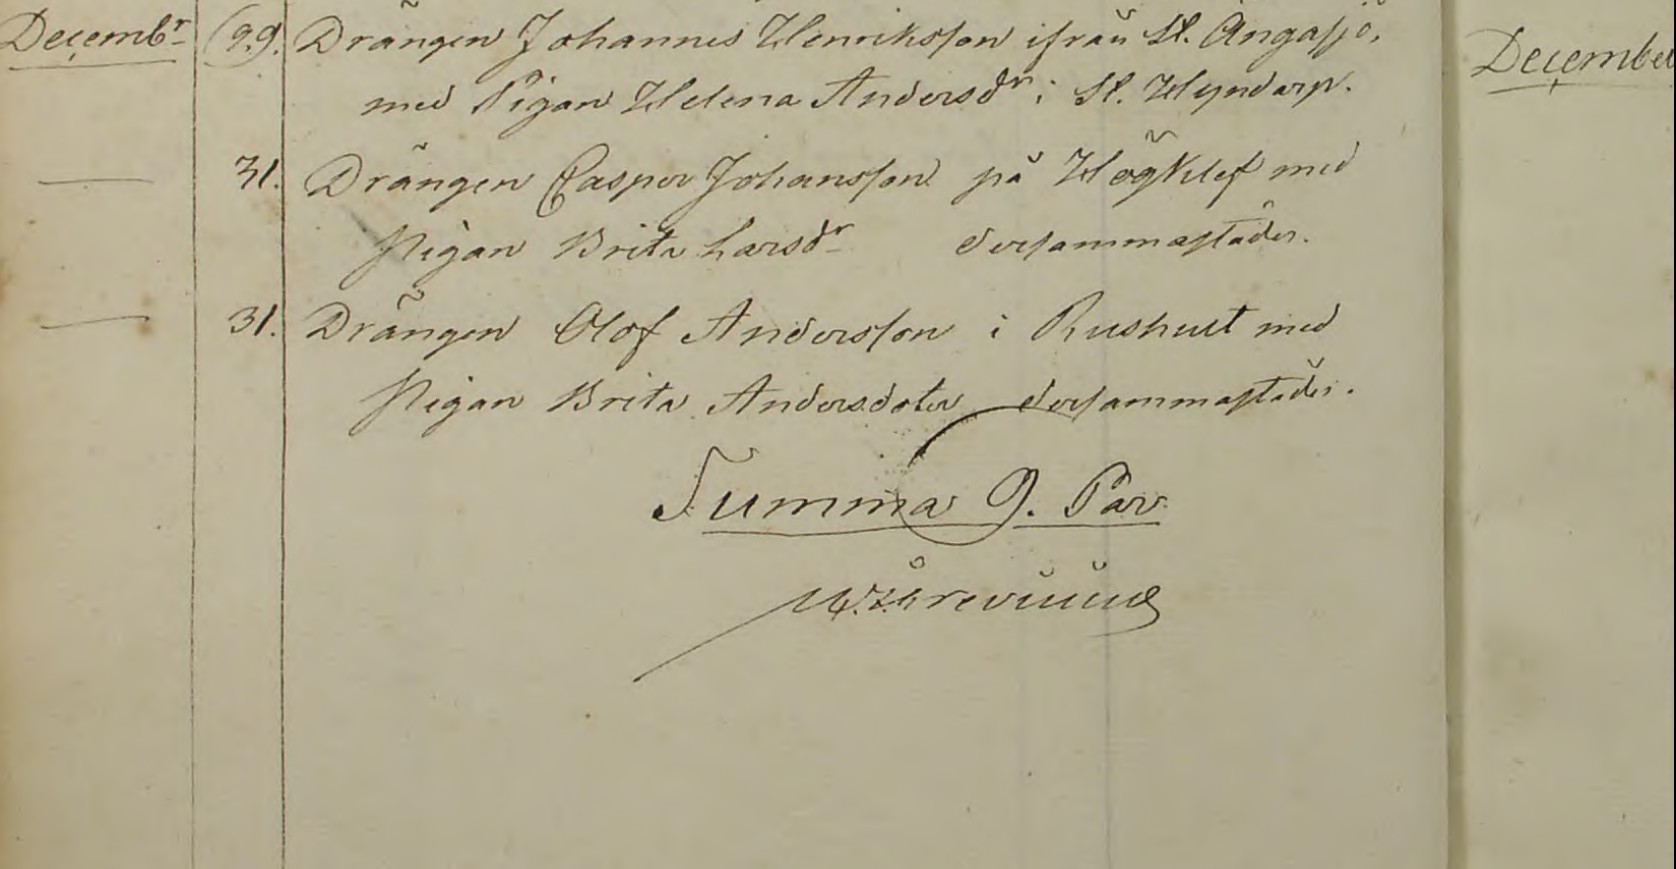 Decembr 29. Drängen Johannes Henriksson ifrån St. Ängasjö,
med Pigan Helena Andersdr i St. Hyndarp.
— 31. Drängen Casper Johansson på Högklef med
Pigan Brita Larsdr dersammastädes.
— 31. Drängen Olof Andersson i Rushult med
Pigan Brita Andersdoter dersammastädes.
Summa 9. Par
December